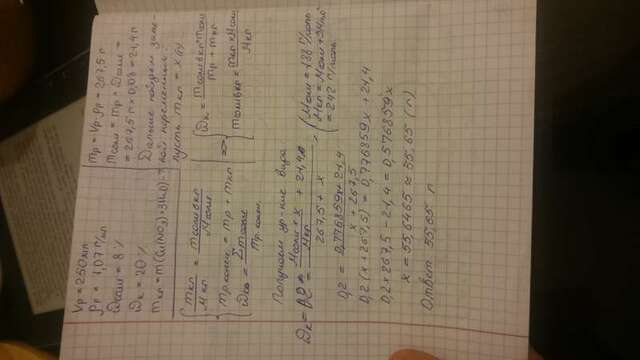 Vр = 250 мл
ρр = 1,07 г/мл
ωсоли = 8 %
ωк = 20 %
mкг = m(Cu(NO₃)₂·3H₂O) - ?
mр = Vр·ρр = 267,5 г
mсоли = mр × ωсоли =
= 267,5 г × 0,08 = 21,4 г
Дальше найдем
переменные
пусть mкг = x г
mкг / Mкг = mсоли в кг / Mсоли
mр.конеч. = mр + mкг
= Σmсоли / mр.конеч.
=> ωк = mсоли в кг + mсоли / mр + mкг
mсоли в кг = mкг × Mсоли / Mкг
Получаем ур-ние вида
ωк = 0,2 = Mсоли × x / Mкг + 21,4 / 267,5 + x
Mсоли = 188 г/моль
Mкг = Mсоли + 3MH₂O
= 242 г/моль
0,2 = 0,776859x + 21,4 / x + 267,5
0,2 (x + 267,5) = 0,776859x + 21,4
0,2 × 267,5 - 21,4 = 0,576859x
x = 55,6465 ≈ 55,65 (г)
Ответ 55,65 г